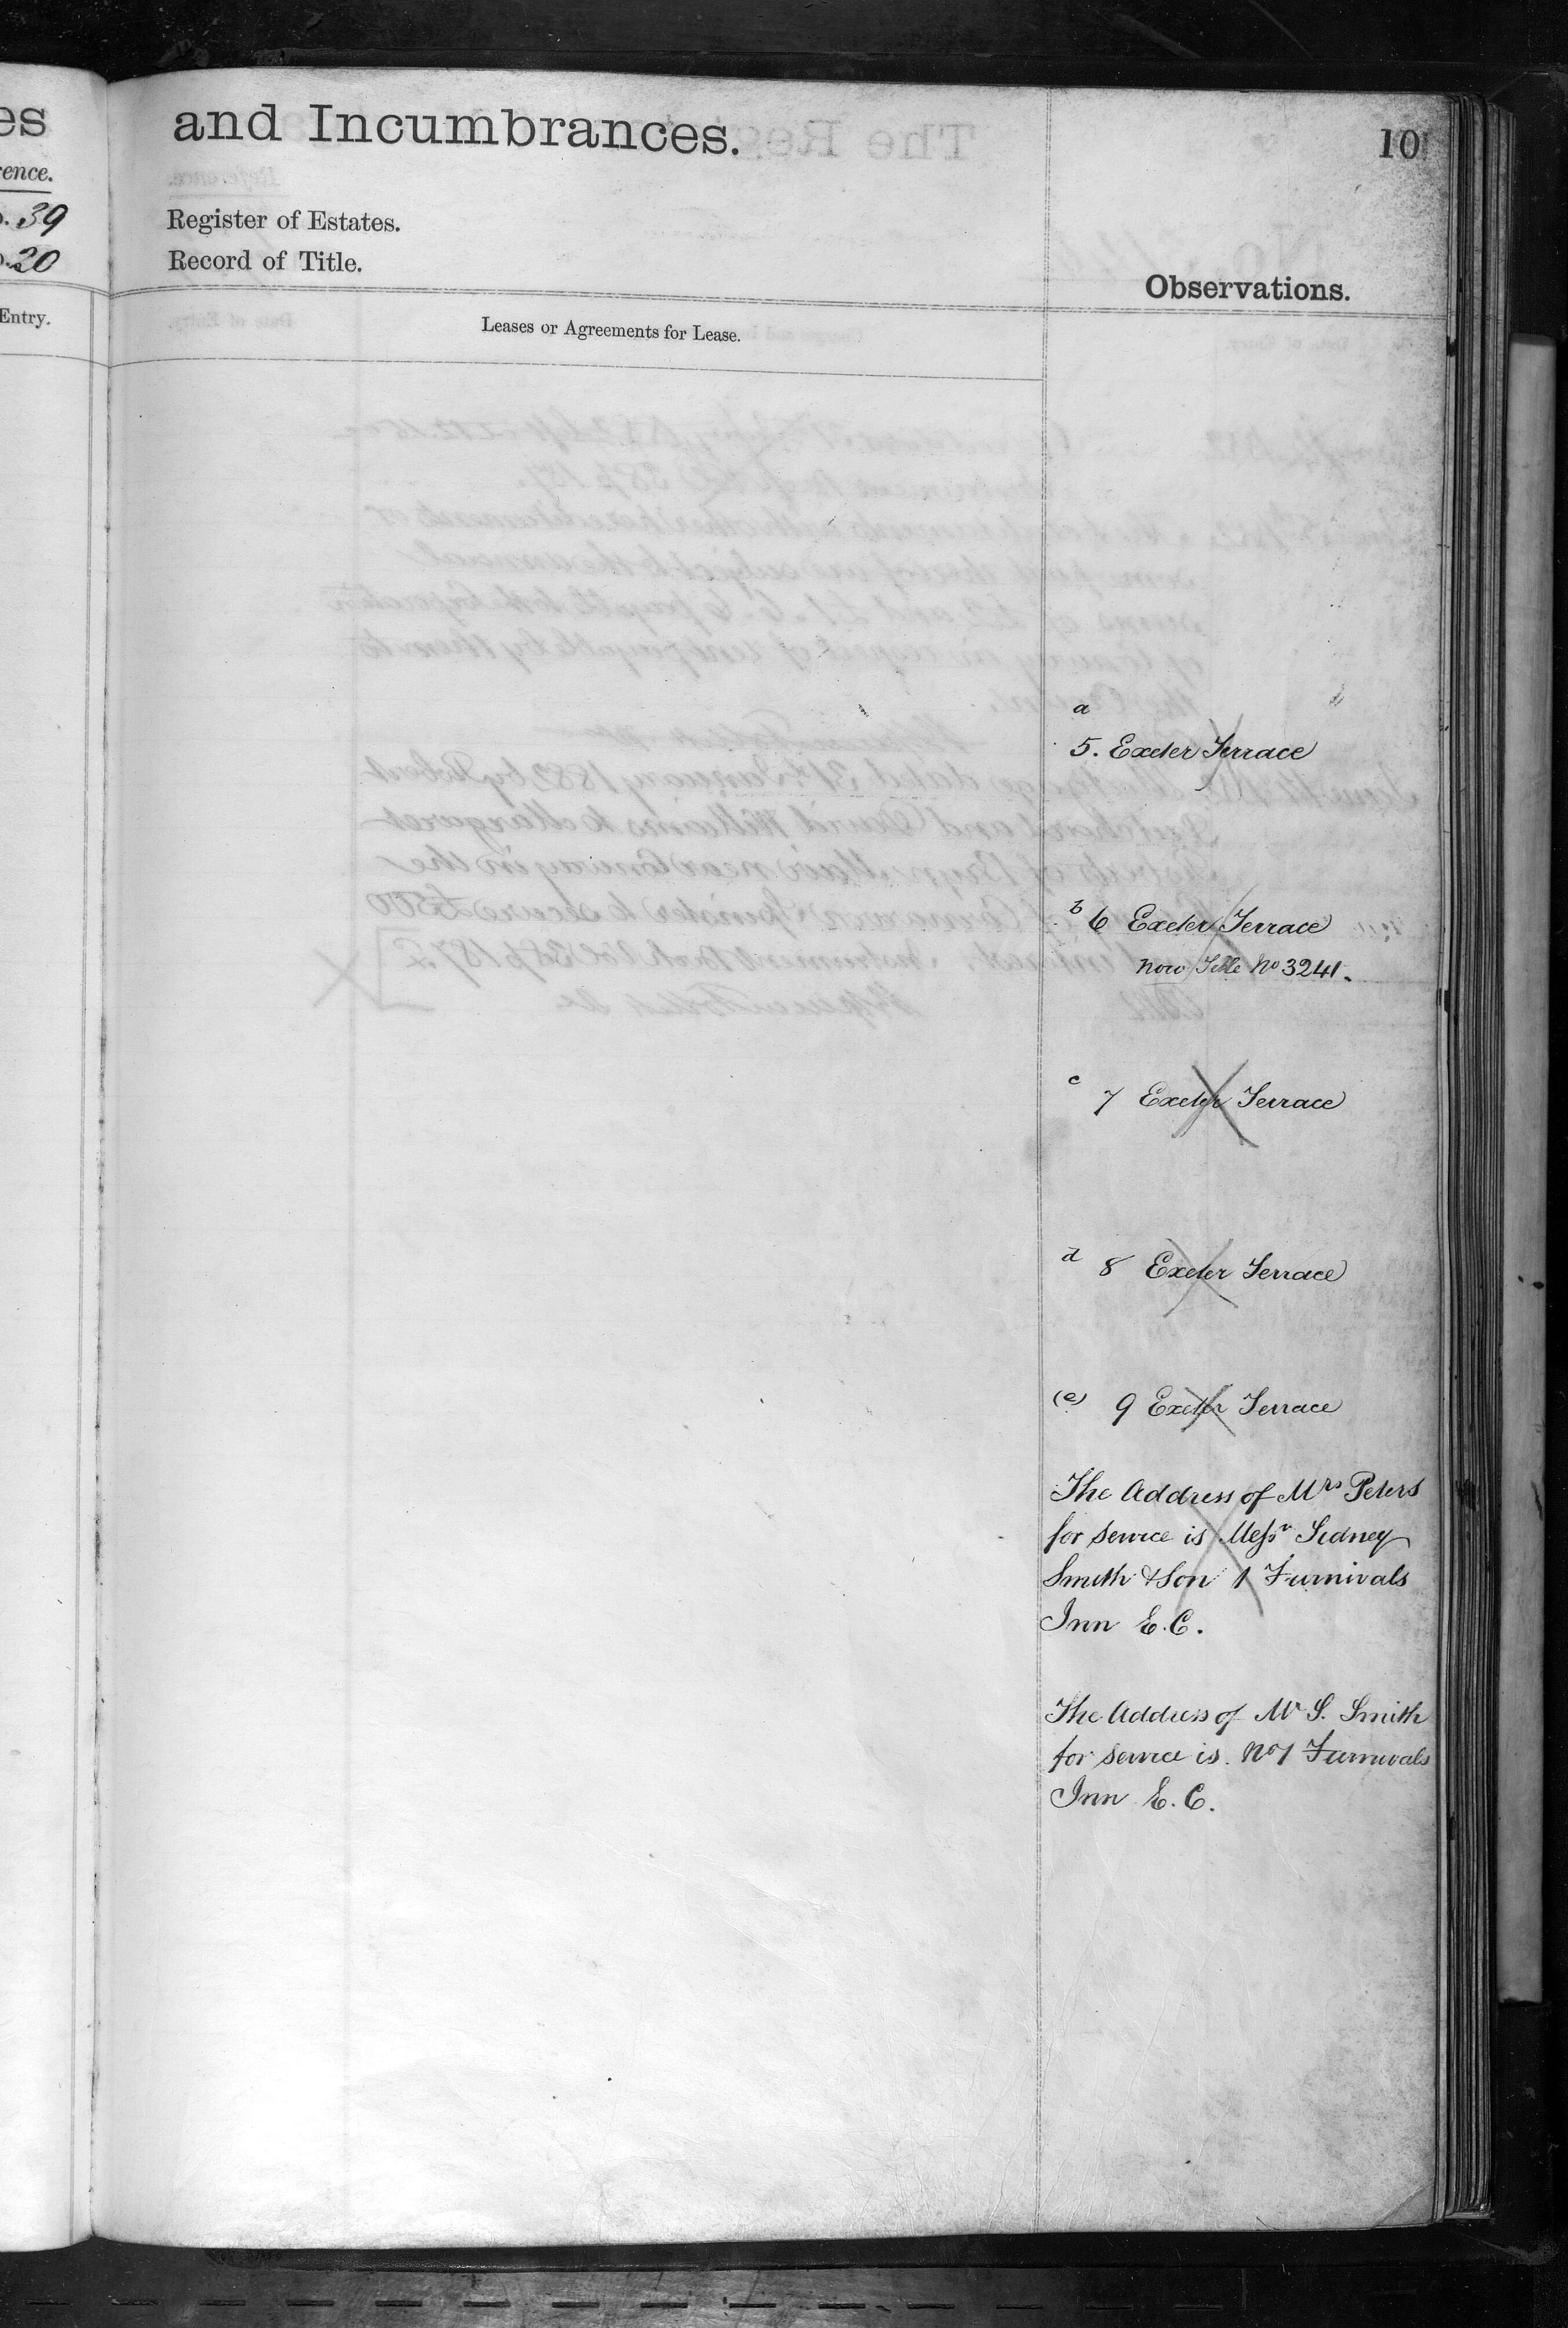 es
ence.
39
20
Entry.
and Incumbrances.
10
Register of Estates.
Record of Title.
Observations.
Leases or Agreements for Lease.
a
5. Exeter Terrace
b 6 Exeter Terrace
now Title No 3241.
c 7 Exeter Terrace
d 8 Exeter Terrace
(e) 9 Exeter Terrace
The Address of Mrs Peters
for service is Messrs Sidney
Smith & Son 1 Furnivals
Inn E.C.
The Address of Mr S. Smith
for service is No 1 Furnivals
Inn E.C.